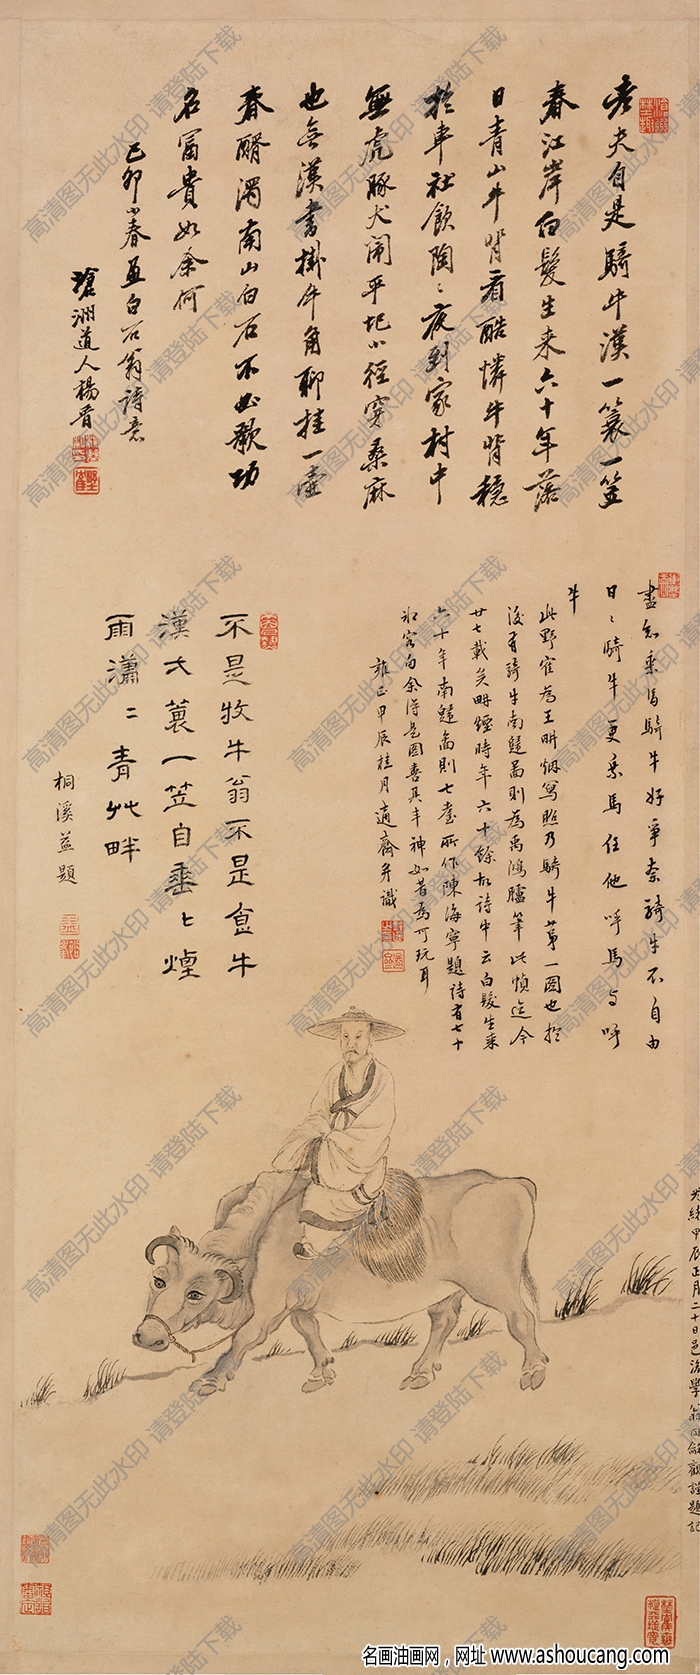 老夫自是騎牛漢一蓑一笠
春江岸白髮生来六十年落
日青山牛背看酷憐牛背穩
於車社飲陶〻夜到家村中
無虎豚犬閙平圯小徑穿桑麻
也無漢書掛牛角聊挂一壺
春醑濁南山白石不必歌功
名富貴如余何
己卯小春畫白石翁詩意
滄洲道人楊晉
盡知乘馬騎牛好爭奈騎牛不自由
日〻騎牛更乘馬任他呼馬与呼
牛
此野崔為王畊烟寫照乃騎牛第一圖也於
後有騎牛南還圖則為禹鴻臚筆此幀迄今
廿七載矣畊煙時年六十餘故詩中云白髮生来
六十年南還圖則七耋所作陳海寧題詩有七十
句余得是圖喜其丰神如昔為可玩耳
雍正甲辰桂月適齋并識
不是牧牛翁不是飯牛
漢大蓑一笠自垂〻煙
雨瀟〻青艸畔
桐溪益題
光緒甲辰正月二十日邑後學翁同龢觀謹題記
高清图无此水印 请登陆下载
名画油画网，网址 www.ashoucang.com